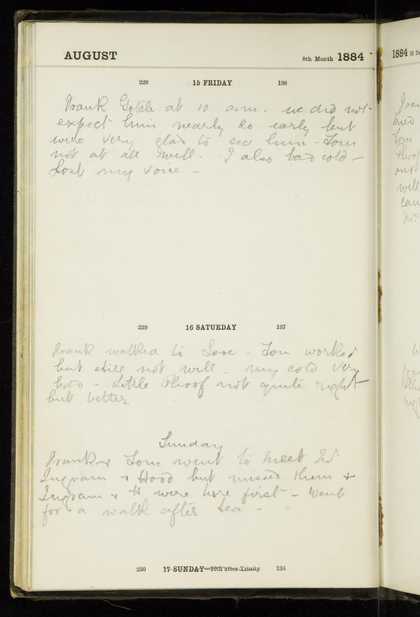 AUGUST 8th Month 1884
228 15 FRIDAY 138
Frank at 10 a.m. we did not
expect him nearly so early but
were very glad to see him - Tom
not at all well. I also bad cold -
Lost my voice -
229 16 SATURDAY 137
Frank walked to Looe - Tom worked
but still not well - my cold very
bad - Little not quite right
but better
Sunday
Frank & Tom went to meet Ed
Ingram & Hood but missed them &
Ingram & H were here first - Went
for a walk after tea -
230 17 SUNDAY—10th after Trinity 136
1884